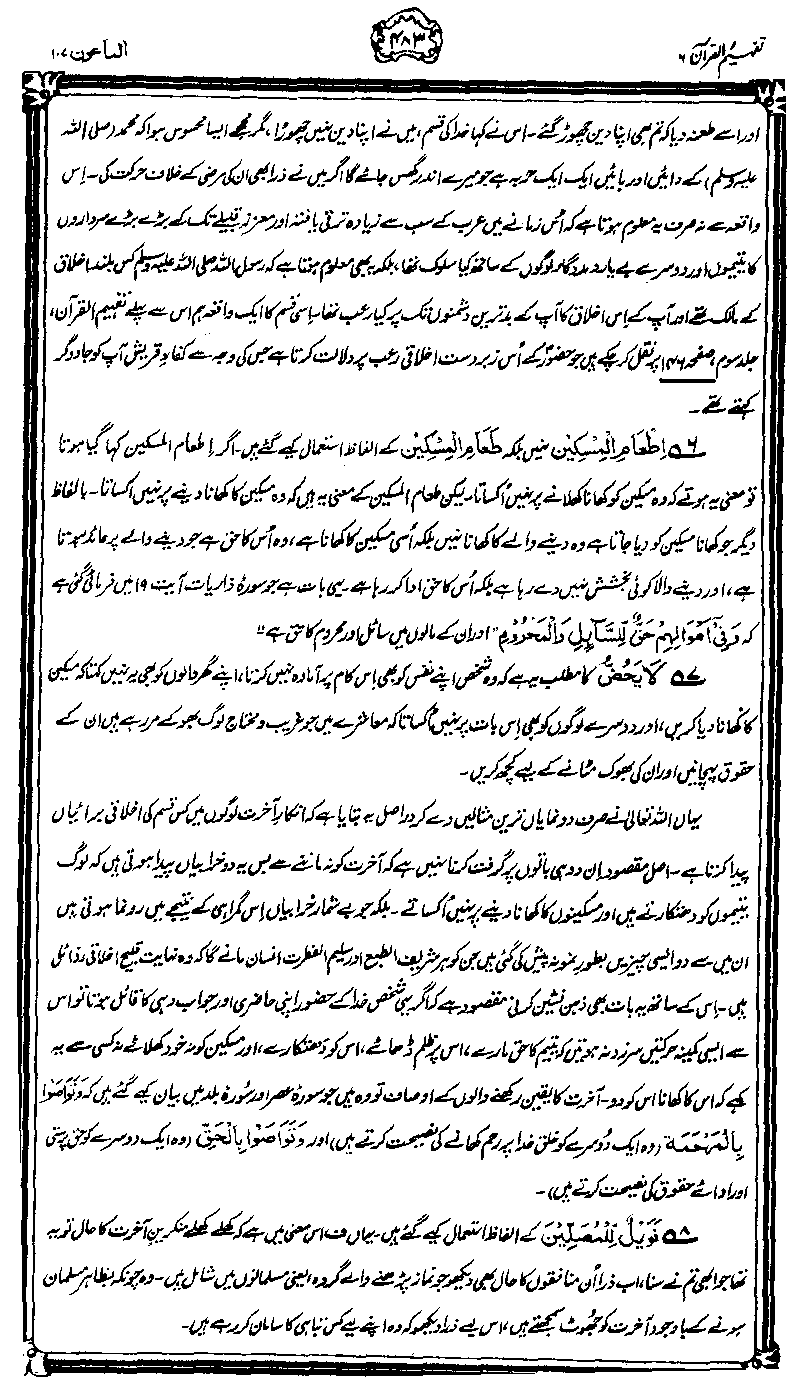 تفہیم القرآن ۶
۴۸۳
الماعون ۱۰۷
اور اسے طعنہ دیا کہ تم بھی اپنا دین چھوڑ گئے۔ اس نے کہا خدا کی قسم، میں نے اپنا دین نہیں چھوڑا، مگر مجھے ایسا محسوس ہوا کہ محمد (صلی اللہ
علیہ وسلم) کے دائیں اور بائیں ایک ایک حربہ ہے جو میرے اندر گھس جائے گا اگر میں نے ذرا بھی ان کی مرضی کے خلاف حرکت کی۔ اِس
واقعہ سے نہ صرف یہ معلوم ہوتا ہے کہ اُس زمانے میں عرب کے سب سے زیادہ ترقی یافتہ اور معزز قبیلے تک کے بڑے بڑے سرداروں
کا یتیموں اور دوسرے بے یار و مددگار لوگوں کے ساتھ کیا سلوک تھا، بلکہ یہ بھی معلوم ہوتا ہے کہ رسول اللہ صلی اللہ علیہ وسلم کس بلند اخلاق
کے مالک تھے اور آپ کے اِس اخلاق کا آپ کے بدترین دشمنوں تک پر کیا رعب تھا۔ اِسی قسم کا ایک واقعہ ہم اس سے پہلے تفہیم القرآن،
جلد سوم، صفحہ ۱۴۶ پر نقل کر چکے ہیں جو حضورؐ کے اُس زبردست اخلاقی رعب پر دلالت کرتا ہے جس کی وجہ سے کفارِ قریش آپ کو جادوگر
کہتے تھے۔
۵۶ اِطْعَامِ الْمِسْکِیْن نہیں بلکہ طَعَامِ الْمِسْکِیْن کے الفاظ استعمال کیے گئے ہیں۔ اگر اِطعام المسکین کہا گیا ہوتا
تو معنی یہ ہوتے کہ وہ مسکین کو کھانا کھلانے پر نہیں اُکساتا۔ لیکن طعام المسکین کے معنی یہ ہیں کہ وہ مسکین کا کھانا دینے پر نہیں اُکساتا۔ بالفاظ
دیگر جو کھانا مسکین کو دیا جاتا ہے وہ دینے والے کا کھانا نہیں بلکہ اُسی مسکین کا کھانا ہے، وہ اُس کا حق ہے جو دینے والے پر عائد ہوتا
ہے، اور دینے والا کوئی بخشش نہیں دے رہا ہے بلکہ اُس کا حق ادا کر رہا ہے۔ یہی بات ہے جو سورۂ ذاریات آیت ۱۹ میں فرمائی گئی ہے
کہ وَفِیْٓ اَمْوَالِہِمْ حَقٌّ لِّلسَّآئِلِ وَالْمَحْرُوْمِ "اور ان کے مالوں میں سائل اور محروم کا حق ہے"
۵۷ لَا یَحُضُّ کا مطلب یہ ہے کہ وہ شخص اپنے نفس کو بھی اِس کام پر آمادہ نہیں کرتا، اپنے گھر والوں کو بھی یہ نہیں کہتا کہ مسکین
کا کھانا دیا کریں، اور دوسرے لوگوں کو بھی اِس بات پر نہیں اُکساتا کہ معاشرے میں جو غریب و محتاج لوگ بھوکے مر رہے ہیں ان کے
حقوق پہچانیں اور ان کی بھوک مٹانے کے لیے کچھ کریں۔
یہاں اللہ تعالیٰ نے صرف دو نمایاں ترین مثالیں دے کر دراصل یہ بتایا ہے کہ انکارِ آخرت لوگوں میں کس قسم کی اخلاقی برائیاں
پیدا کرتا ہے۔ اصل مقصود اِن دو ہی باتوں پر گرفت کرنا نہیں ہے کہ آخرت کو نہ ماننے سے بس یہ دو خرابیاں پیدا ہوتی ہیں کہ لوگ
یتیموں کو دھتکارتے ہیں اور مسکینوں کا کھانا دینے پر نہیں اُکساتے۔ بلکہ جو بے شمار خرابیاں اِس گمراہی کے نتیجے میں رونما ہوتی ہیں
ان میں سے دو ایسی چیزیں بطور نمونہ پیش کی گئی ہیں جن کو ہر شریف الطبع اور سلیم الفطرت انسان مانے گا کہ وہ نہایت قبیح اخلاقی رذائل
ہیں۔ اِس کے ساتھ یہ بات بھی ذہن نشین کرنی مقصود ہے کہ اگر یہی شخص خدا کے حضور اپنی حاضری اور جواب دہی کا قائل ہوتا تو اس
سے ایسی کمینہ حرکتیں سرزد نہ ہوتیں کہ یتیم کا حق مارے، اس پر ظلم ڈھائے، اس کو دھتکارے، اور مسکین کو نہ خود کھلائے نہ کسی سے یہ
کہے کہ اس کا کھانا اس کو دو۔ آخرت کا یقین رکھنے والوں کے اوصاف تو وہ ہیں جو سورۂ عصر اور سورۂ بلد میں بیان کیے گئے ہیں کہ وَتَوَاصَوْا
بِالْمَرْحَمَۃِ (وہ ایک دُوسرے کو خلق خدا پر رحم کھانے کی نصیحت کرتے ہیں) اور وَتَوَاصَوْا بِالْحَقِّ (وہ ایک دوسرے کو حق پرستی
اور ادائے حقوق کی نصیحت کرتے ہیں)۔
۵۸ فَوَیْلٌ لِّلْمُصَلِّیْنَ کے الفاظ استعمال کیے گئے ہیں۔ یہاں ف اس معنی میں ہے کہ کھلے کھلے منکرینِ آخرت کا حال تو یہ
تھا جو ابھی تم نے سنا، اب ذرا اُن منافقوں کا حال بھی دیکھو جو نماز پڑھنے والے گروہ، یعنی مسلمانوں میں شامل ہیں۔ وہ چونکہ بظاہر مسلمان
ہونے کے باوجود آخرت کو جُھوٹ سمجھتے ہیں، اس لیے ذرا دیکھو کہ وہ اپنے لیے کس تباہی کا سامان کر رہے ہیں۔